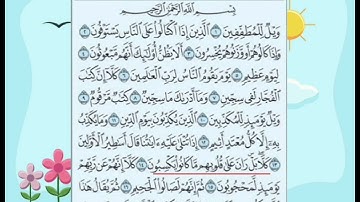 بِسْمِ اللَّهِ الرَّحْمَٰنِ الرَّحِيمِ
وَيْلٌ لِّلْمُطَفِّفِينَ ١ الَّذِينَ إِذَا اكْتَالُوا عَلَى النَّاسِ يَسْتَوْفُونَ ٢
وَإِذَا كَالُوهُمْ أَو وَّزَنُوهُمْ يُخْسِرُونَ ٣ أَلَا يَظُنُّ أُولَٰئِكَ أَنَّهُم مَّبْعُوثُونَ ٤
لِيَوْمٍ عَظِيمٍ ٥ يَوْمَ يَقُومُ النَّاسُ لِرَبِّ الْعَالَمِينَ ٦ كَلَّا إِنَّ كِتَابَ
الْفُجَّارِ لَفِي سِجِّينٍ ٧ وَمَا أَدْرَاكَ مَا سِجِّينٌ ٨ كِتَابٌ مَّرْقُومٌ ٩
وَيْلٌ يَوْمَئِذٍ لِّلْمُكَذِّبِينَ ١٠ الَّذِينَ يُكَذِّبُونَ بِيَوْمِ الدِّينِ ١١ وَمَا يُكَذِّبُ
بِهِ إِلَّا كُلُّ مُعْتَدٍ أَثِيمٍ ١٢ إِذَا تُتْلَىٰ عَلَيْهِ آيَاتُنَا قَالَ أَسَاطِيرُ الْأَوَّلِينَ
١٣ كَلَّا بَلْ رَانَ عَلَىٰ قُلُوبِهِم مَّا كَانُوا يَكْسِبُونَ ١٤ كَلَّا إِنَّهُمْ عَن رَّبِّهِمْ
يَوْمَئِذٍ لَّمَحْجُوبُونَ ١٥ ثُمَّ إِنَّهُمْ لَصَالُو الْجَحِيمِ ١٦ ثُمَّ يُقَالُ هَٰذَا